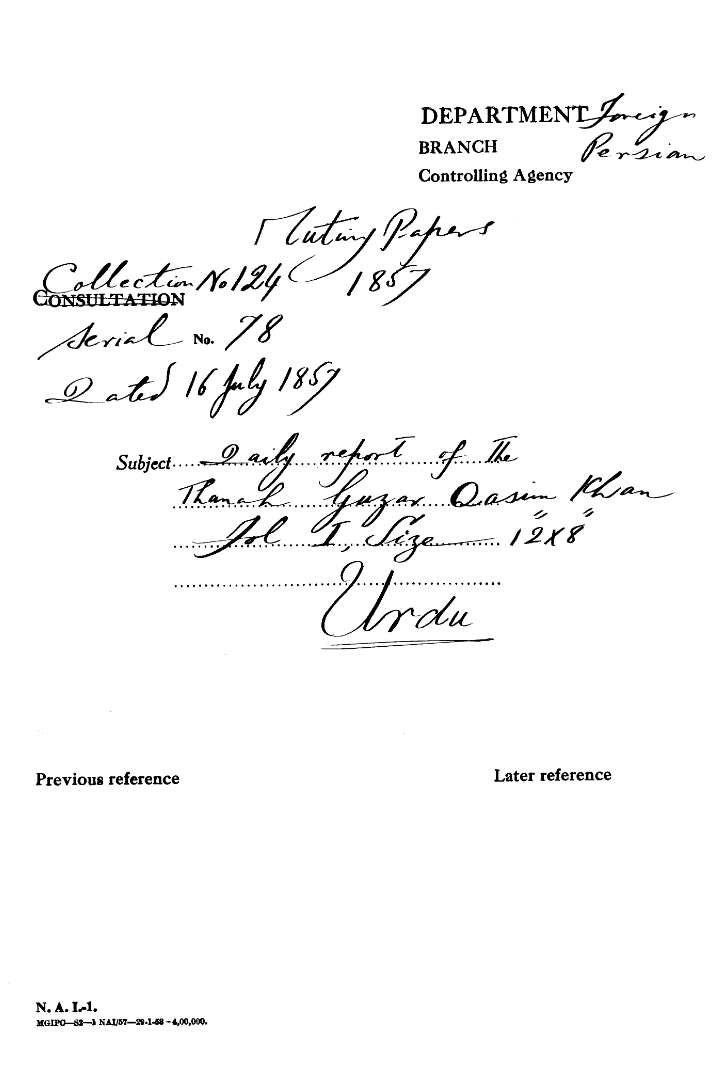 DEPARTMENT Foreign
BRANCH Persian
Controlling Agency
Mutiny Papers
Collection No 124 1857
CONSULTATION
Serial No. 78
Dated 16 July 1857
Subject Daily report of the
Thanah Guzar Qasim Khan
Fol I, Size 12" x 8"
Urdu
Previous reference
Later reference
N. A. I.-1.
MGIPC—S2—1 NAI/57—29-1-58—4,00,000.